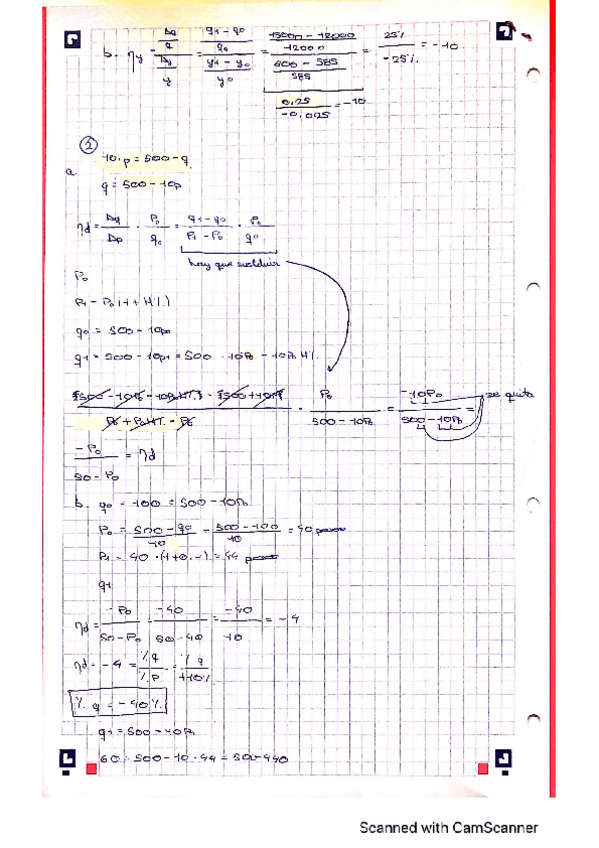 b. ηy = Δq/q / Δy/y = (q1 - q0)/q0 / (y1 - y0)/y0 = (15000 - 12000)/12000 / (600 - 585)/585 = 25% / -25% = -10
0,25 / -0,025 = -10
2
a. 10·p = 500 - q
q = 500 - 10p
ηd = Δq/Δp · P0/q0 = (q1 - q0)/(P1 - P0) · P0/q0
hay que sustituir
P0
P1 = P0(1 + H%)
q0 = 500 - 10p0
q1 = 500 - 10p1 = 500 - 10P0 - 10P0 H%
[500 - 10P0 - 10P0H%] - [500 + 10P0] / P0 + P0H% - P0 · P0 / 500 - 10P0 = -10P0 / 500 - 10P0 = se quita
-P0 / 50 - P0 = ηd
b. q0 = 100 = 500 - 10P0
P0 = (500 - q0)/10 = (500 - 100)/10 = 40
P1 = 40 · (1 + 0,1) = 44
q1
ηd = -P0 / 50 - P0 = -40 / 50 - 40 = -40 / 10 = -4
ηd = -4 = %q / %p = %q / +10%
% q = -40%
q1 = 500 - 10P1
60 = 500 - 10 · 44 = 500 - 440
Scanned with CamScanner